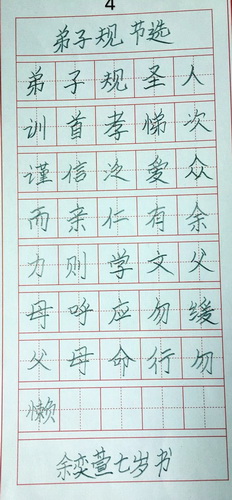 4
弟子规 节选
弟子规圣人
训首孝悌次
谨信泛爱众
而亲仁有余
力则学文父
母呼应勿缓
父母命行勿
懒
余奕萱七岁书